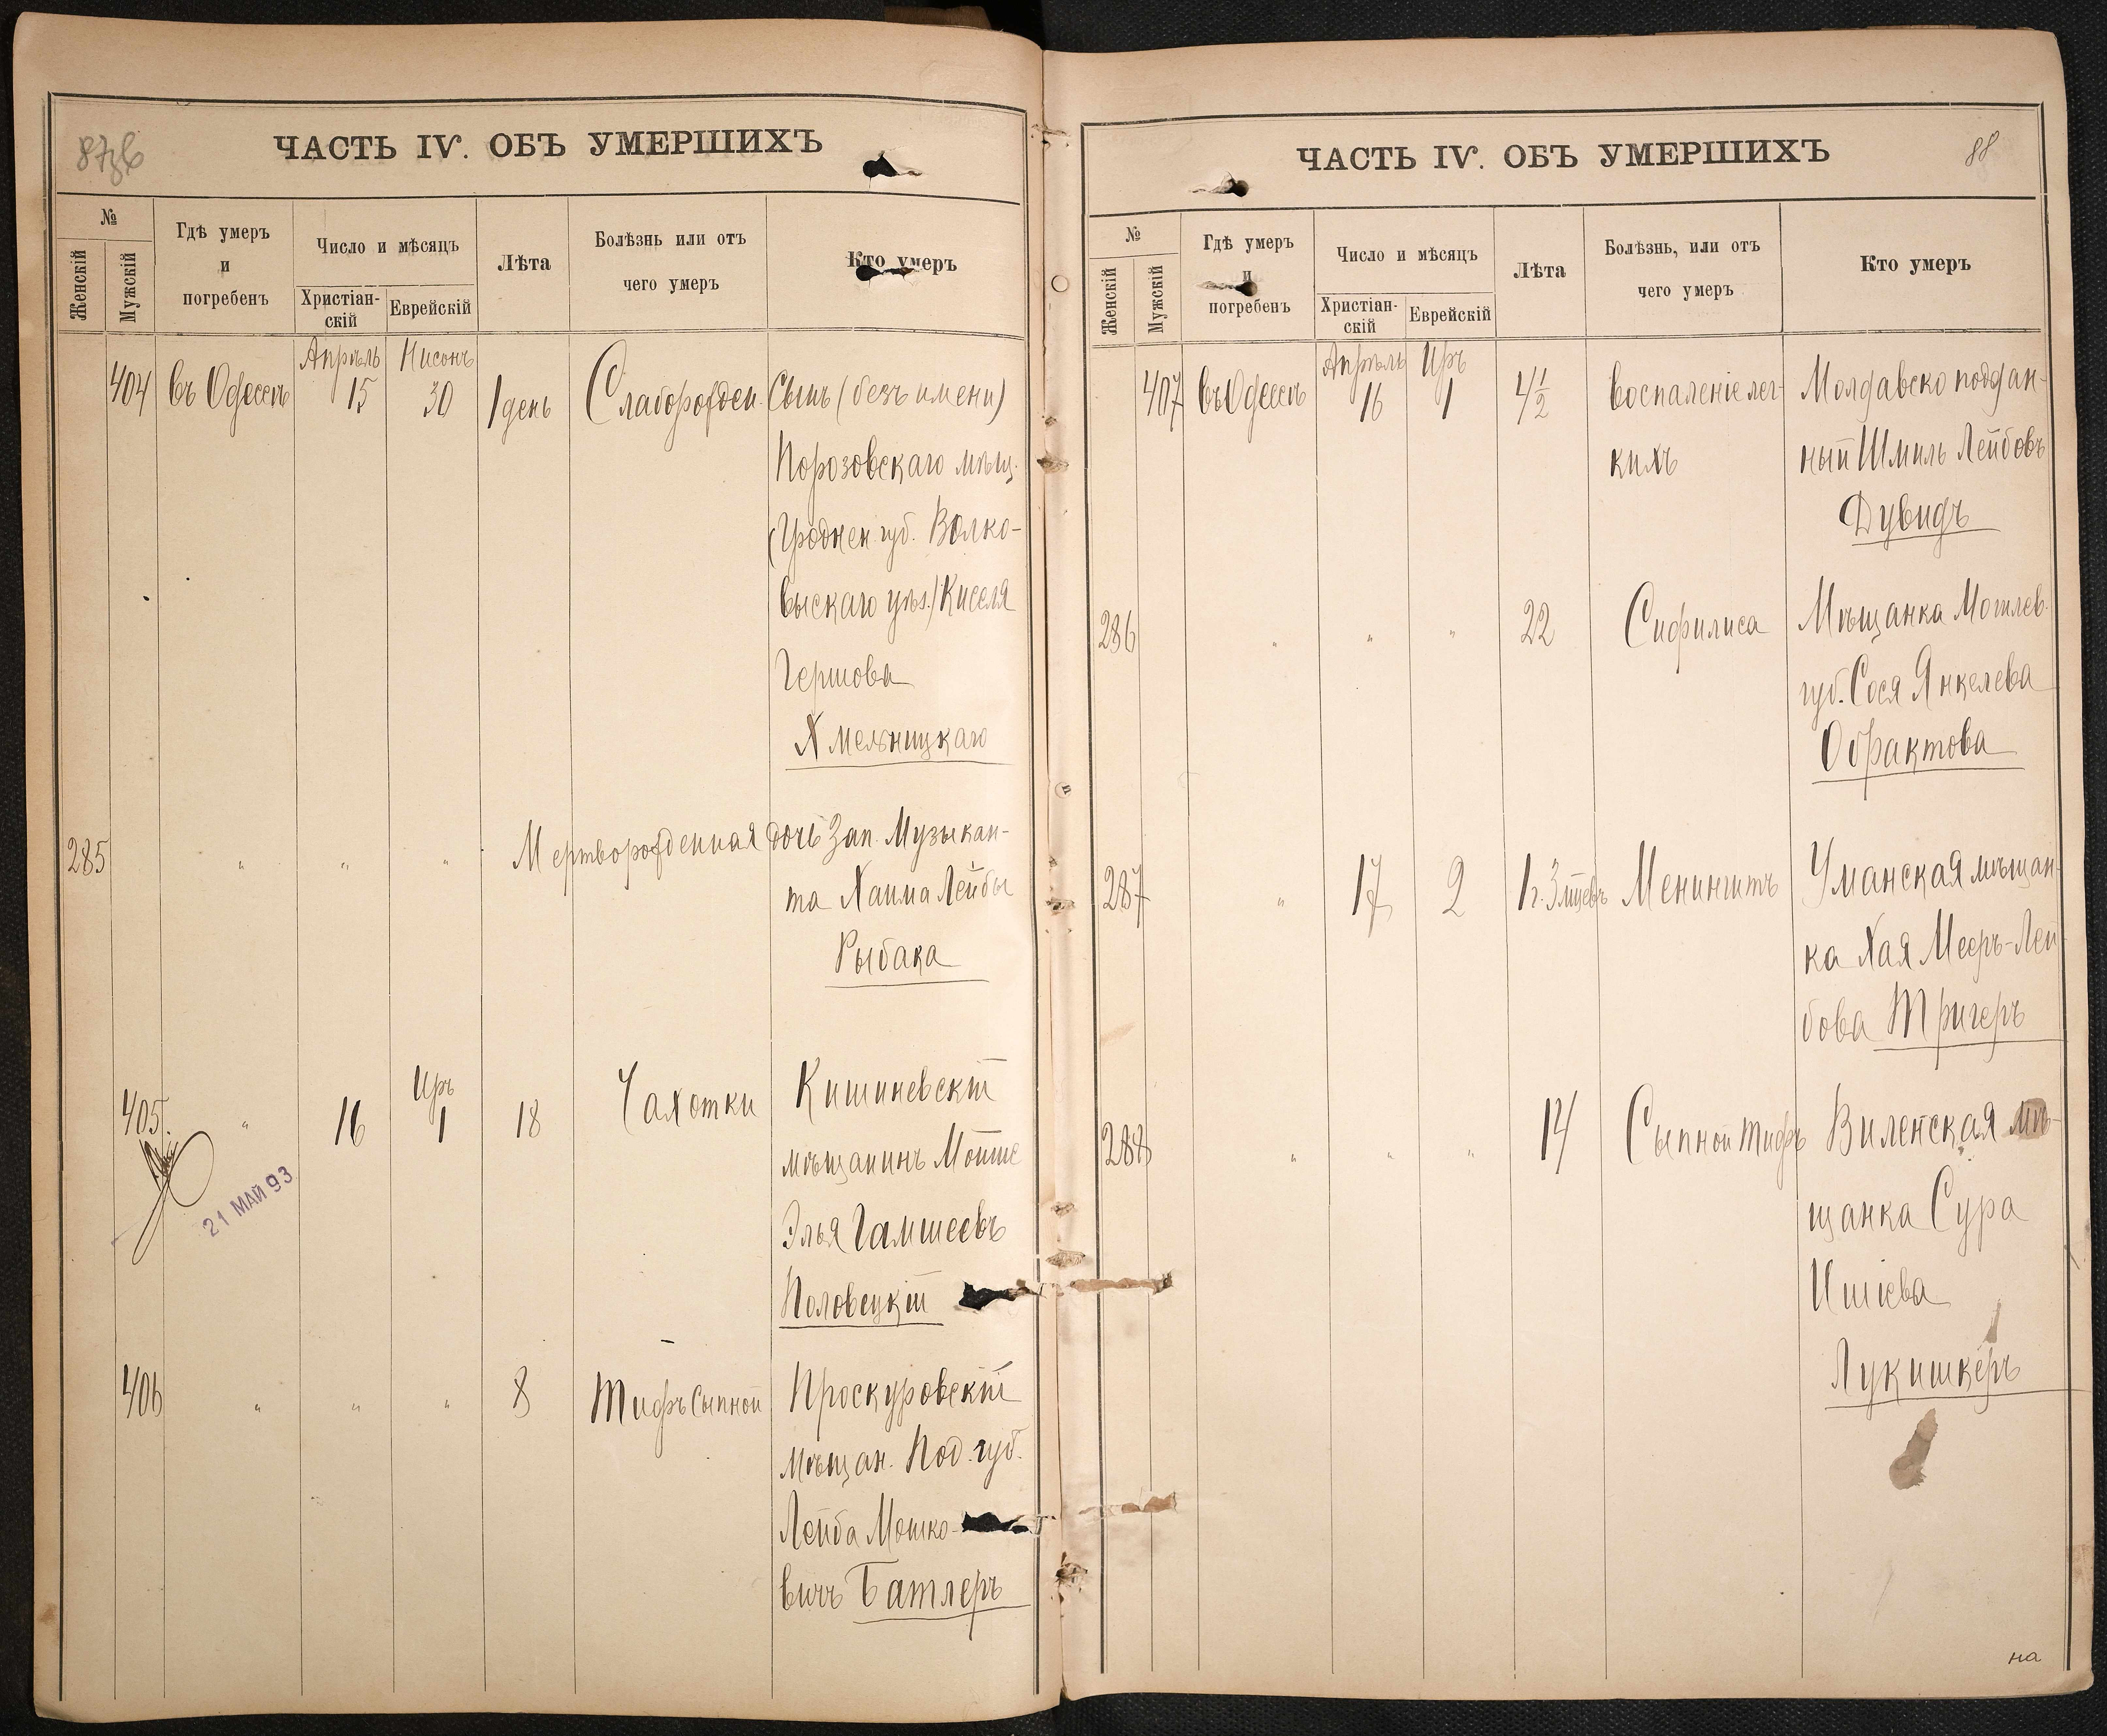 ЧАСТЬ IV. ОБЪ УМЕРШИХЪ
№
Женскій
Мужскій
Гдѣ умеръ
и
погребенъ
Число и мѣсяцъ
Христіан-
скій
Еврейскій
Лѣта
Болѣзнь или отъ
чего умеръ
Кто умеръ
Апрѣль Нисонъ
404 въ Одессѣ 15 30 1 день Слаборожден. Сынъ (безъ имени)
Порозовскаго мѣщ.
(Гроднен губ. Волко-
выскаго уѣз.) Киселя
Гершова
Хмельницкаго
285 " " " Мертворожденная дочь Зап. Музыкан-
та Хаима Лейбы
Рыбака
Иръ
405. " 16 1 18 Чахотки Кишиневскій
мѣщанинъ Мойше
Элья Гамшеевъ
Половецкій
21 МАЙ 93
406 " " " 8 Тифъ сыпной Проскуровскій
мѣщан. Под. губ.
Лейба Мошко-
вичъ Батлеръ
ЧАСТЬ IV. ОБЪ УМЕРШИХЪ
88
№
Женскій
Мужскій
Гдѣ умеръ
и
погребенъ
Число и мѣсяцъ
Христіан-
скій
Еврейскій
Лѣта
Болѣзнь, или отъ
чего умеръ
Кто умеръ
Апрѣль Иръ
407 въ Одессѣ 16 1 4½ воспаленіе лег- Молдавско поддан-
кихъ ный Шмиль Лейбовъ
Дувидъ
286 " " " 22 Сифилиса Мѣщанка Могилев.
губ. Сося Янкелева
Обрактова
287 " 17 2 1 г. 3 мѣсевъ Менингитъ Уманская мѣщан-
ка Хая Мееръ-Лей
бова Тригеръ
288 " " " 14 Сыпной тифъ Виленская мѣ-
щанка Сура
Ишіева
Лукишкеръ
на